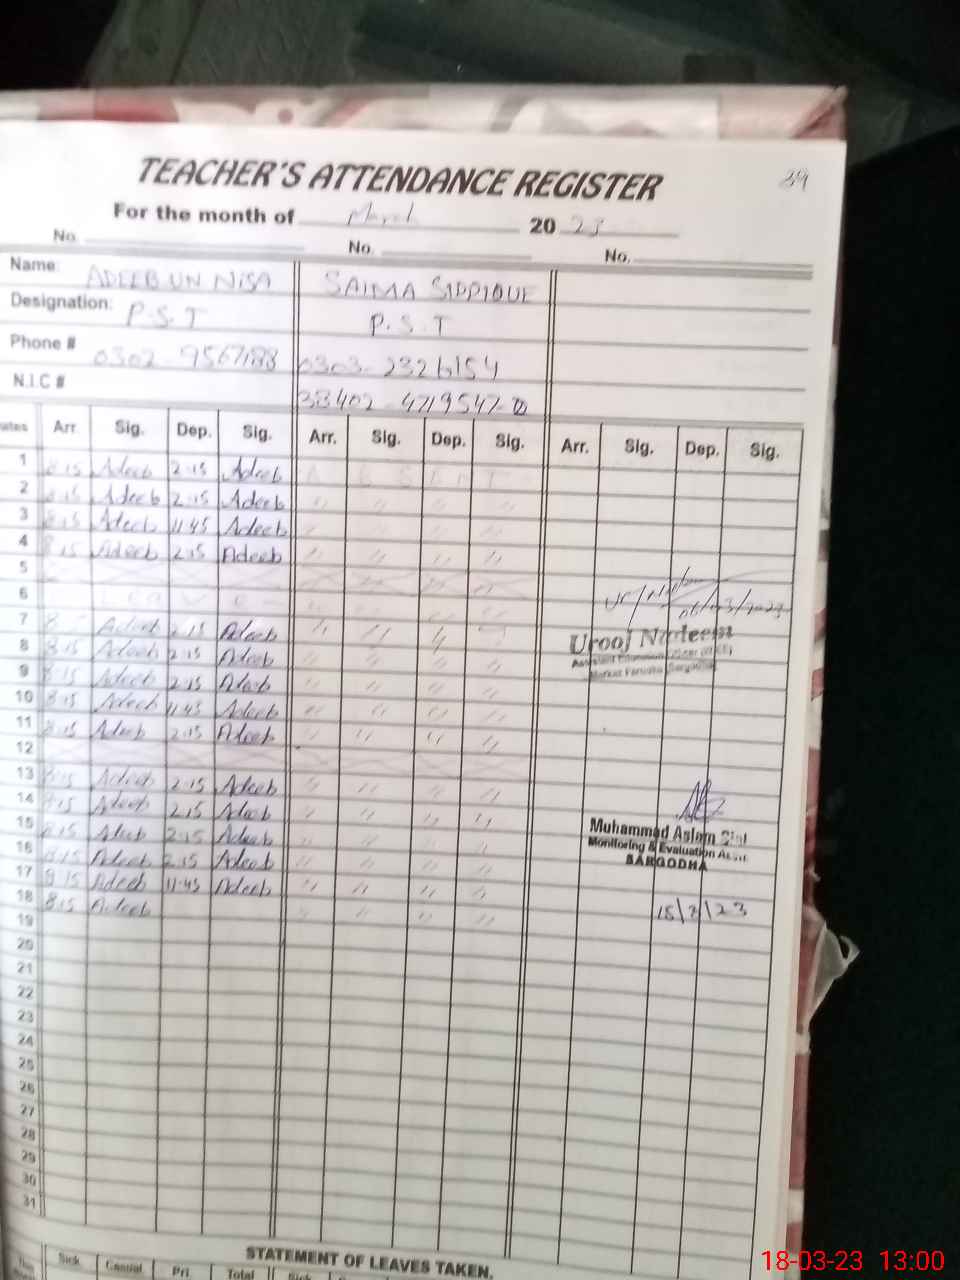 TEACHER'S ATTENDANCE REGISTER 39
For the month of March 20 23
No. No. No.
Name: ADEEB UN NISA SAIMA SIDDIQUE
Designation: P.S.T P.S.T
Phone # 0302-9567188 0303-2326154
N.I.C # 38402-4719547-0
Dates Arr. Sig. Dep. Sig. Arr. Sig. Dep. Sig. Arr. Sig. Dep. Sig.
1 8.15 Adeeb 2.15 Adeeb A B S A N T
2 8.15 Adeeb 2.15 Adeeb " " " "
3 8.15 Adeeb 11.45 Adeeb " " " "
4 8.15 Adeeb 2.15 Adeeb " " " "
5
6 L E A V E " " " " 06/03/2023
7 Adeeb 2.15 Adeeb " " " "
Urooj Nadeem
8 8.15 Adeeb 2.15 Adeeb " " " "
Assistant Education Officer
9 8.15 Adeeb 2.15 Adeeb " " " "
Markaz Sargodha
10 8.15 Adeeb 11.45 Adeeb " " " "
11 8.15 Adeeb 2.15 Adeeb " " " "
12
13 8.15 Adeeb 2.15 Adeeb " " " "
14 8.15 Adeeb 2.15 Adeeb " " " "
15 8.15 Adeeb 2.15 Adeeb " " " "
Muhammad Aslam
Monitoring & Evaluation Asstt
16 8.15 Adeeb 2.15 Adeeb " " " "
SARGODHA
17 8.15 Adeeb 11.45 Adeeb " " " "
18 8.15 Adeeb " " " "
15/3/23
19
20
21
22
23
24
25
26
27
28
29
30
31
STATEMENT OF LEAVES TAKEN.
Sick Casual Pri. Total Sick
18-03-23 13:00